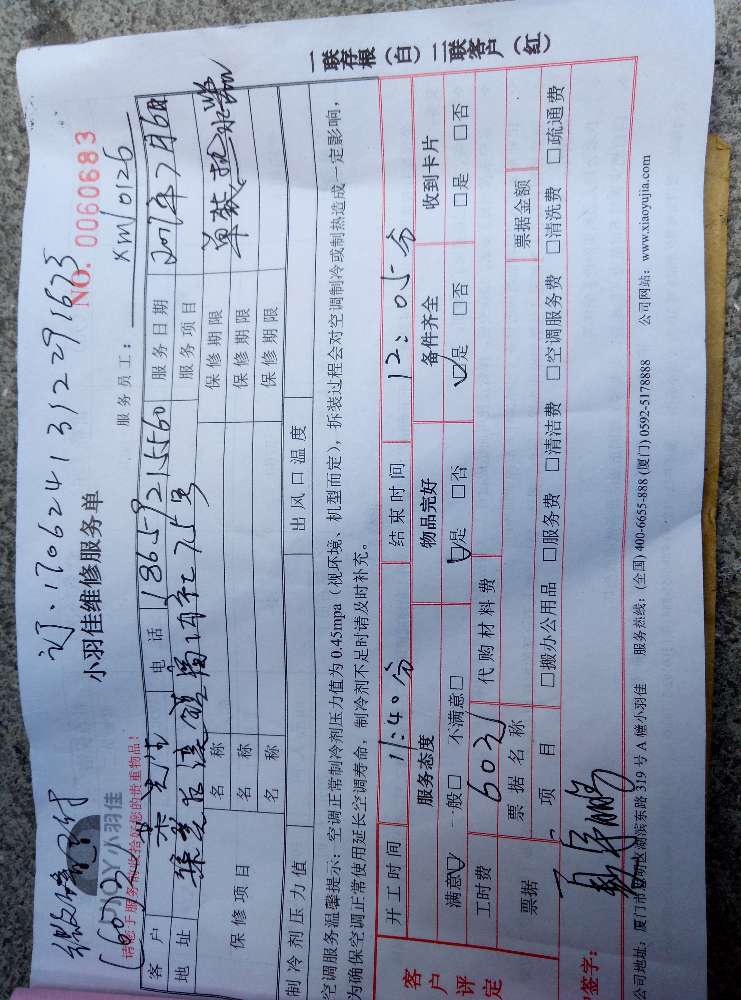 订·170624131229 1623
微信已付
(60元)
小羽佳
小羽佳维修服务单
NO. 0060683
请您于服务前收拾好您的贵重物品!
服务员工: XM10126
客户 电话 18659215560 服务日期 2017年7月6日
地址 75号 服务项目 单装热水器
保修项目 名称 保修期限
名称 保修期限
名称 保修期限
制冷剂压力值 出风口温度
空调服务温馨提示: 空调正常制冷剂压力值为0.45mpa(视环境、机型而定),拆装过程会对空调制冷或制热造成一定影响,
为确保空调正常使用延长空调寿命,制冷剂不足时请及时补充。
一联存根(白)二联客户(红)
开工时间 11:40分 结束时间 12:05分
客户评定 服务态度 物品完好 备件齐全 收到卡片
满意☑ 一般□ 不满意□ ☑是 □否 ☑是 □否 □是 □否
工时费 60元 代购材料费
票据 票据名称 票据金额
项目 □搬办公用品 □服务费 □清洁费 □空调服务费 □清洗费 □疏通费
签字:
公司地址: 厦门市思明区湖滨东路319号A幢小羽佳 服务热线: (全国) 400-6655-888 (厦门) 0592-5178888 公司网站: www.xiaoyujia.com